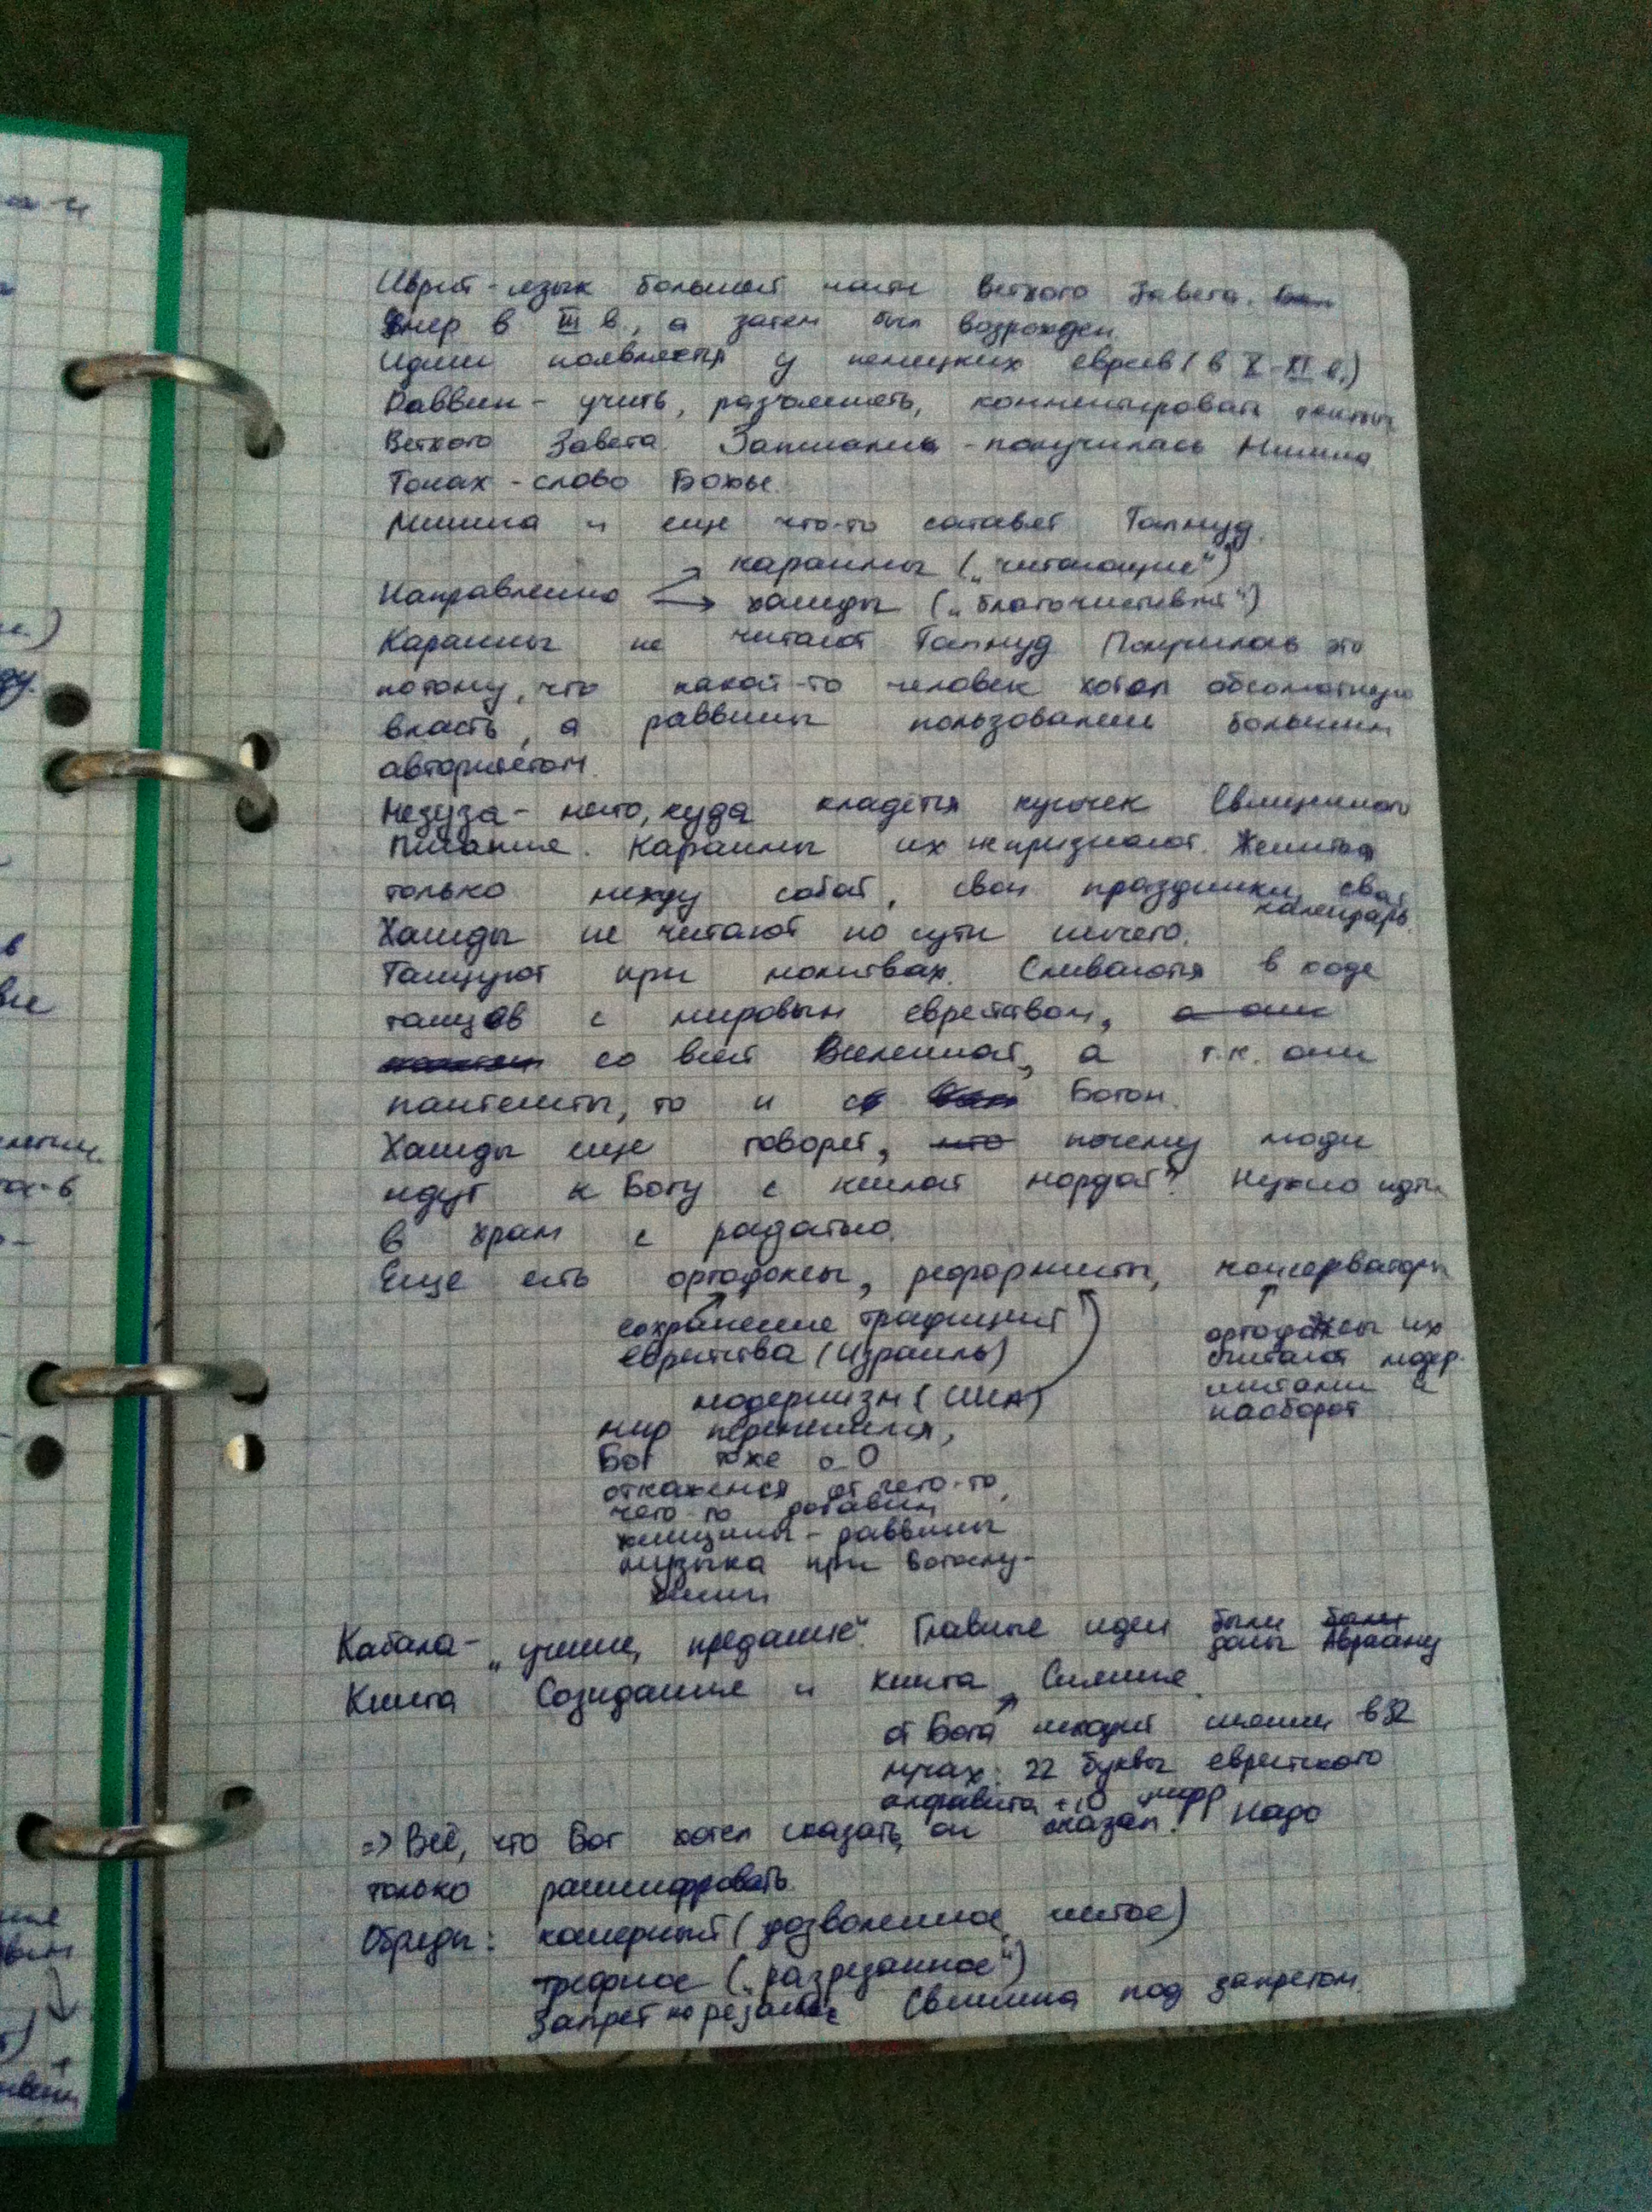 Иврит - язык большей части Ветхого Завета.
Умер в III в., а затем был возрожден.
Идиш появляется у немецких евреев (в X-XI в.)
Раввин - учить, разъяснять, комментировать тексты
Ветхого Завета. Записались - получилась Мишна.
Танах - слово Божье.
Мишна и еще что-то составят Талмуд.
караимы („читающие“)
Направления
хасиды („благочестивые“)
Караимы не читают Талмуд. Получилось это
потому, что какой-то человек хотел абсолютную
власть, а раввины пользовались большим
авторитетом.
Мезуза - место, куда кладётся кусочек Священного
Писания. Караимы их не признают. Женитьба
только между собой, свои праздники, свой
календарь.
Хасиды не читают по сути ничего.
Танцуют при молитвах. Сливаются в ходе
танцов с мировым еврейством, а они
со всей Вселенной, а т.к. они
пантеисты, то и с Богом.
Хасиды еще говорят, что почему люди
идут к Богу с кислой мордой? Нужно идти
в храм с радостью.
Еще есть ортодоксы, реформисты, консерваторы
сохранение традиций
еврейства (Израиль)
ортодоксы их
считают модер-
нистами и
наоборот
модернизм (США)
мир переменился,
Бог тоже
откажемся от чего-то,
чего-то добавим
женщины - раввины
музыка при богослу-
жении
Кабала - „учение, предание“. Главные идеи были были
даны Аврааму
Книга Созидание и книга Сияние.
от Бога исходит сияние в 32
лучах: 22 буквы еврейского
алфавита + 10 цифр
=> Всё, что Бог хотел сказать, он сказал! Надо
только расшифровать.
Обряды: кошерный (дозволенное, чистое)
трефное („разрезанное“)
Запрет на резание Свинина под запретом.